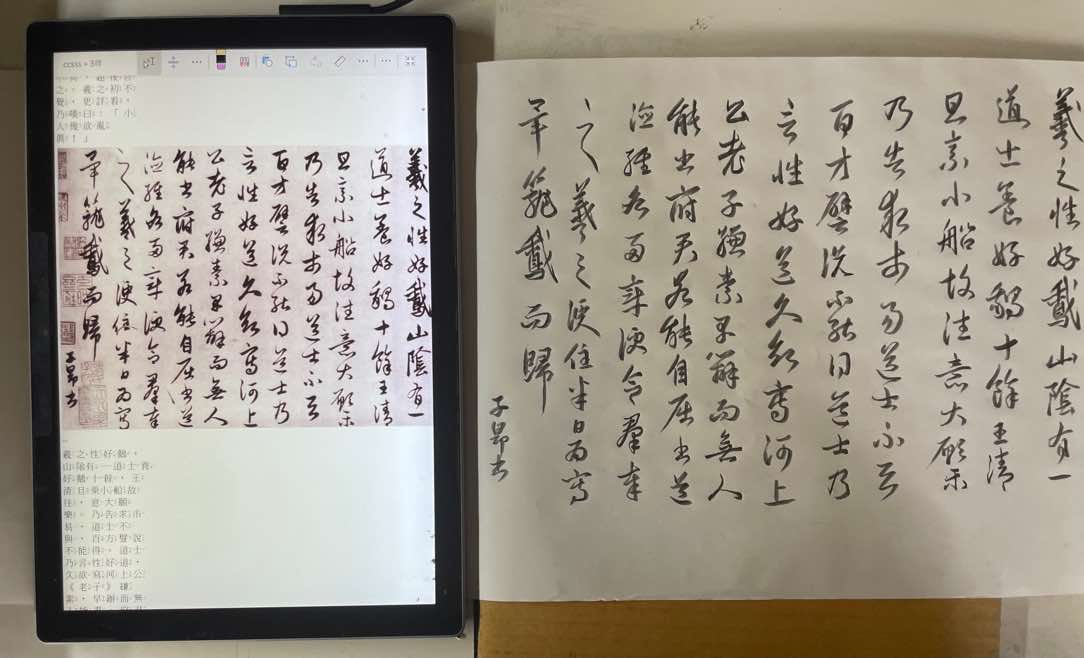 ccsss
之。羲之初不
覺,更詳看,
乃嘆曰:「小
人幾欲亂
真!」
羲之性好鵞山陰有一
道士養好鵝十餘王清
旦乘小船故往意大願乐
乃告求市易道士不与
百方譬說不能得道士乃
言性好道久欲寫河上
公老子縑素早辦而無人
能书府君若能自屈书道
德經各兩章便合羣奉
之羲之便住半日為寫
畢籠鵞而歸
子昂书
羲之性好鵝,
山陰有一道士養
好鵝十餘,王
清旦乘小船故
往,意大願
樂。乃告求市
易,道士不
與,百方譬說
不能得,道士
乃言性好道,
久欲寫河上公
《老子》縑
素,早辦而無
羲之性好鵞山陰有一
道士養好鵝十餘王清
旦乘小船故往意大願乐
乃告求市易道士不与
百方譬說不能得道士乃
言性好道久欲寫河上
公老子縑素早辦而無人
能书府君若能自屈书道
德經各兩章便合羣奉
之羲之便住半日為寫
畢籠鵞而歸
子昂书